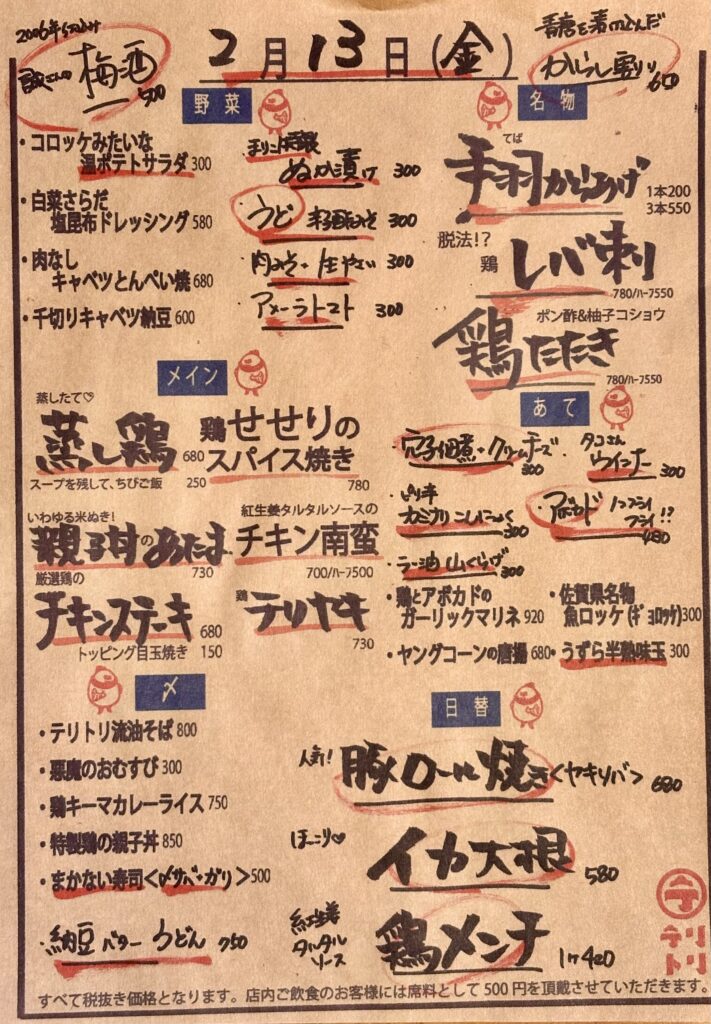 2006年仕込み
誠さんの 梅酒 500
2月13日(金)
唐を煮込んだ
からし割り 600
野菜
・コロッケみたいな
温ポテトサラダ 300
・白菜さらだ
塩昆布ドレッシング 580
・肉なし
キャベツとんぺい焼 680
・千切りキャベツ納豆 600
ぬか漬け 300
うど 300
肉みそ・生やさい 300
アメーラトマト 300
名物
てば
手羽からあげ
1本200
3本550
脱法!?
鶏 レバ刺
780/ハーフ550
ポン酢&柚子コショウ
鶏たたき
780/ハーフ550
メイン
蒸したて♡
蒸し鶏 680
スープを残して、ちびご飯 250
鶏 せせりの
スパイス焼き
780
いわゆる米ぬき!
親子丼のあたま
730
紅生姜タルタルソースの
チキン南蛮
700/ハーフ500
厳選鶏の
チキンステーキ 680
トッピング目玉焼き 150
鶏 テリヤキ
730
あて
穴子佃煮・クリームチーズ
300
タコさん
ウインナー
300
ピリ辛
カミナリこんにゃく
300
アボカド ノンフライ
フライ!?
480
ラー油 山くらげ
300
・鶏とアボカドの
ガーリックマリネ 920
・佐賀県名物
魚ロッケ(ギョロッケ)300
・ヤングコーンの唐揚 680
・うずら半熟味玉 300
〆
・テリトリ流油そば 800
・悪魔のおむすび 300
・鶏キーマカレーライス 750
・特製鶏の親子丼 850
・まかない寿司<〆サバ・ガリ>500
・納豆バターうどん 750
日替
人気!
豚ロール焼き<ヤキソバ> 680
ほっこり♡
イカ大根 580
紅生姜
タルタル
ソース
鶏メンチ 1ケ420
テリ
トリ
すべて税抜き価格となります。店内ご飲食のお客様には席料として500円を頂戴させていただきます。